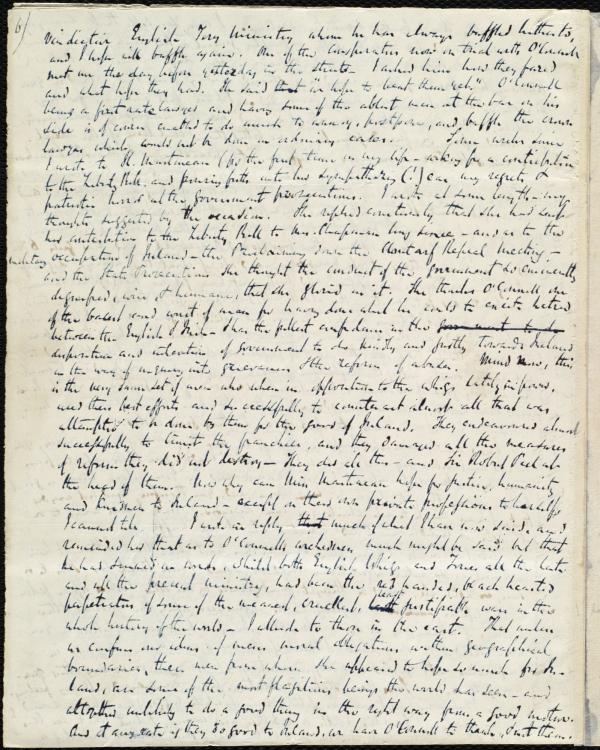 6/
vindictive English Tory Ministry whom he has always baffled hitherto,
and I hope will baffle again. One of the conspirators now on trial with O'Connell
met me the day before yesterday in the streets. I asked him how they fared
and what hope they had. He said "we hope to beat them yet." O'Connell
being a first rate lawyer and having some of the ablest men at the bar on his
side is of course enabled to do much to worry, postpone, and baffle the crown
lawyers which would not be done in ordinary cases. Some weeks since
I wrote to H. Martineau (for the first time in my life - asking for a contribution
to the Liberty Bell, and pouring forth into her sympathizing (!) ear my regrets &
patriotic horror at the government prosecutions. I wrote at some length - my
thoughts suggested by the occasion. She replied courteously that she had sent
her contribution to the Liberty Bell to Mrs. Chapman long since - and as to the
military occupation of Ireland - the Proclaiming down the Clontarf Repeal Meeting -
and the State Prosecutions she thought the conduct of the government so eminently
dignified, wise, & humane, that she gloried in it. She thinks O'Connell one
of the basest and worst of men for having done what he could to excite hatred
between the English & Irish - I has the fullest confidence in the government to do
disposition and intention of government to do kindly and justly towards Ireland
in the way of inquiry into grievances & the reform of abuses. Mind now, this
is the very same set of men who when in opposition to the whigs lately in power,
used their best efforts and successfully to counteract almost all that was
attempted to be done by them for the good of Ireland. They endeavoured almost
successfully to limit the franchise, and they damaged all the measures
of reform they did not destroy - They did all this - and Sir Robert Peel at
the head of them. Now why can Miss Martineau hope for justice, humanity
and kindness to Ireland - except on their own private professions to herself
I cannot tell. I wrote in reply that much of what I have now said, and
reminded her that as to O'Connell's wickedness much might be said but that
he has sinned in words, whilst both English Whigs and Tories all the late
and all the present ministry, had been the red handed, black hearted
perpetrators of some of the meanest, cruellest, least justifiable wars in the
whole history of the world - I allude to those in the east. That unless
we confuse our ideas of mens moral obligations within geographical
boundaries, these men from whom she appeared to hope so much for Ire-
land, are some of the most flagitious beings the world has seen - and
altogether unlikely to do a good thing in the right way from a good motive.
And at any rate if they do good to Ireland, we have O'Connell to thank, & not them.